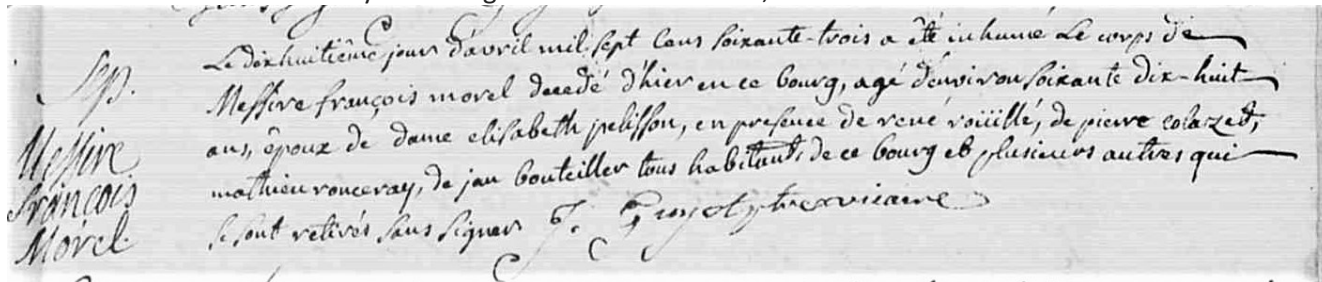 Sep.
Messire
françois
Morel.
Le dix huitième jour d'avril mil sept cens soixante-trois a été inhumé Le corps de
Messire françois morel decedé d'hier en ce bourg, agé d'environ soixante dix-huit
ans, époux de dame elisabeth pelisson, en presence de rené roüillé, de pierre colazet,
mathieu ronceray, de jan bouteiller tous habitants de ce bourg et plusieurs autres qui
se sont retirés sans signer J. Guyot ptre vicaire